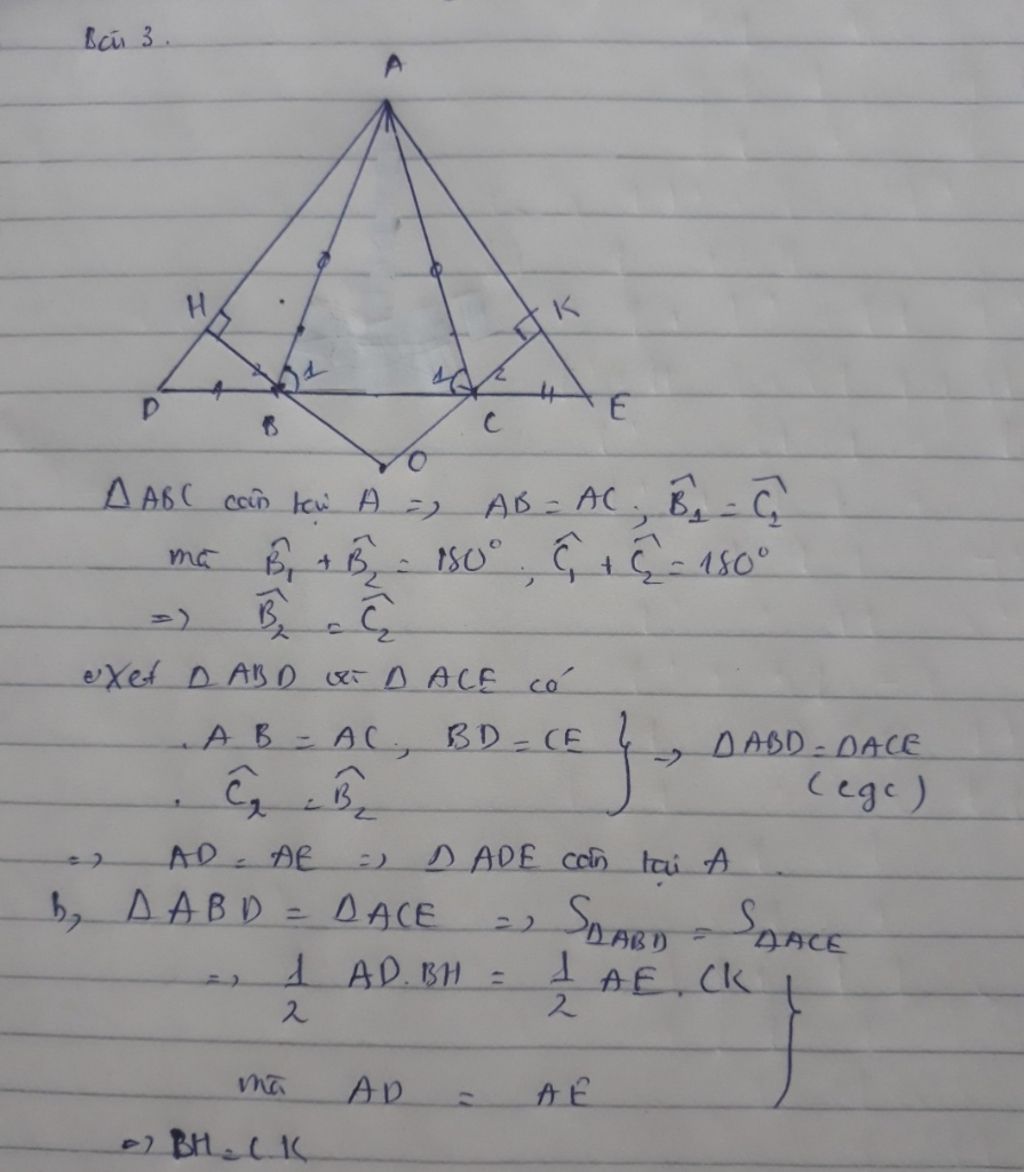 Bài 3.
A
H
K
2
1
1
2
D
B
C
E
O
ΔABC cân tại A => AB = AC; B̂₁ = Ĉ₁
mà B̂₁ + B̂₂ = 180°, Ĉ₁ + Ĉ₂ = 180°
=> B̂₂ = Ĉ₂
Xét ΔABD và ΔACE có
. AB = AC, BD = CE } => ΔABD = ΔACE
. Ĉ₂ = B̂₂ (cgc)
=> AD = AE => ΔADE cân tại A.
b, ΔABD = ΔACE => S ΔABD = S ΔACE
=> 1/2 AD.BH = 1/2 AE.CK }
mà AD = AE
=> BH = CK